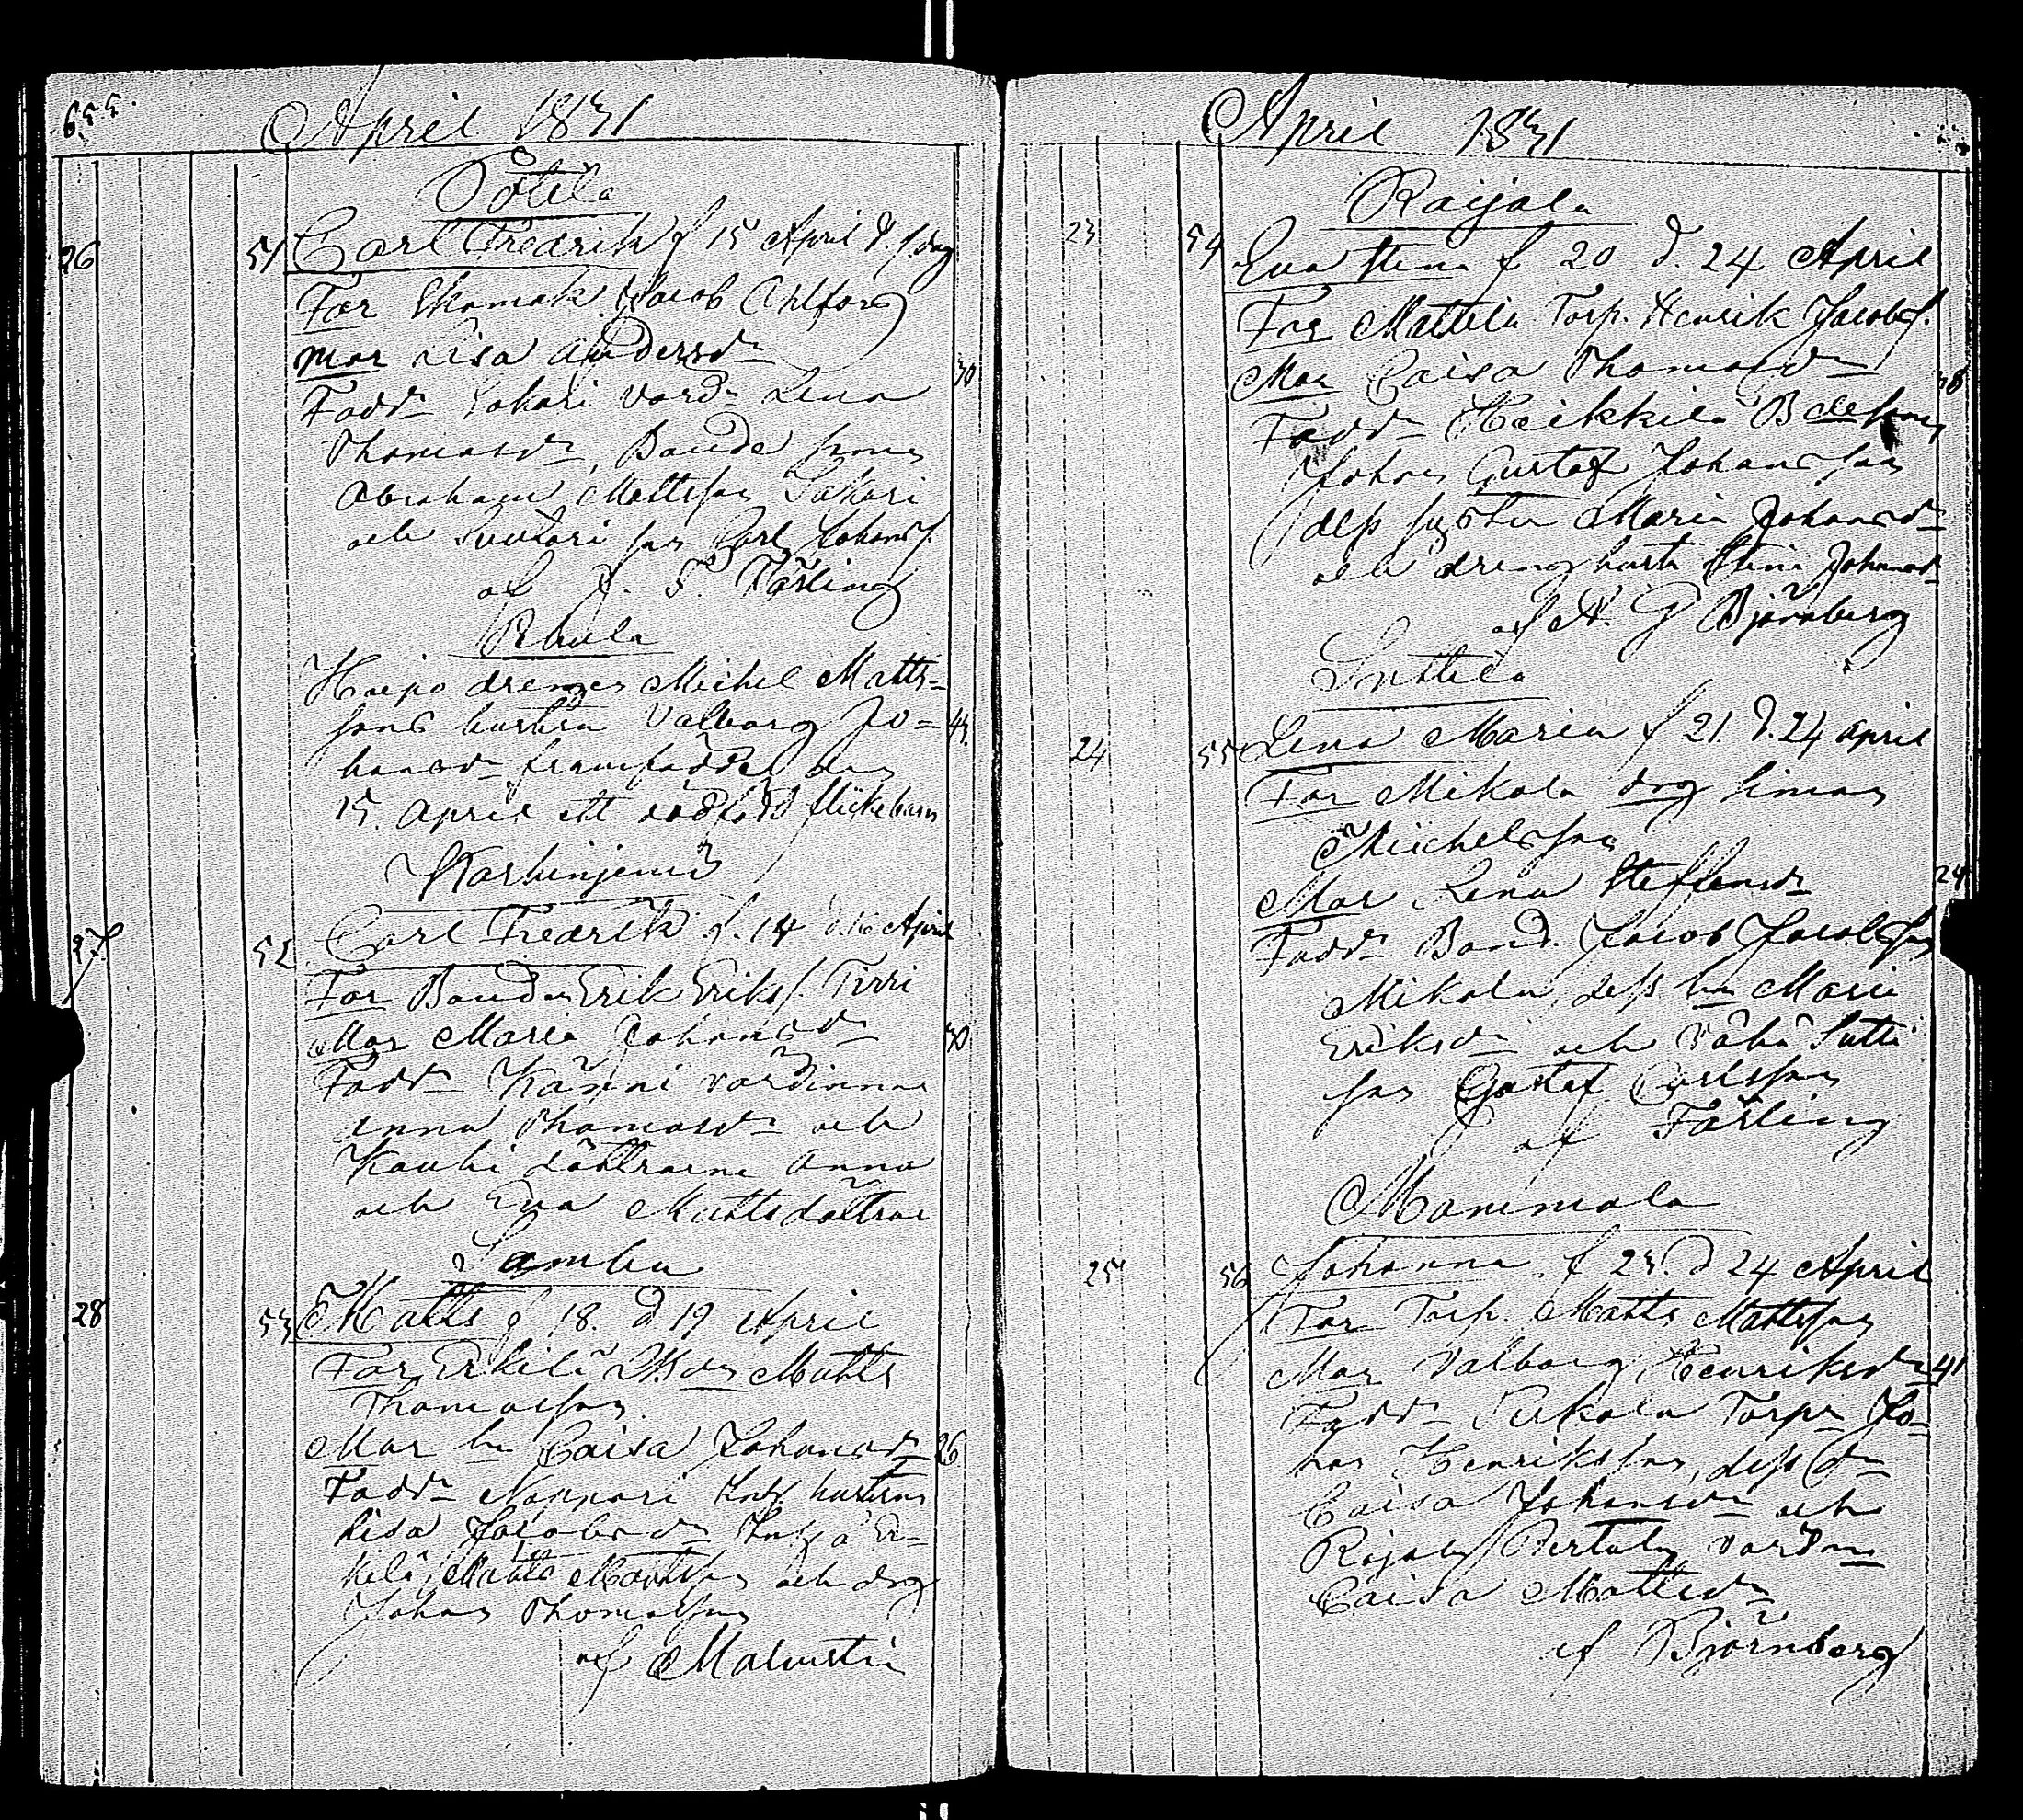 655.
April 1831
Potila
26 51 Carl Fredrik f 15 April d. s. dag
Far Skomak. Jacob Ahlfors
Mar Lisa Andersdr
30
Faddr Sakari värdn Lena
Thomasdr, Bonde sonen
Abraham Mattsson Sakari
och Suutari son Carl Johanss.
af J. F. Färling
Punola
Haepo drengen Michel Matts-
sons hustru Valborg Jo- 43.
hansdr framfödde den
15. April ett dödfödt flickebarn
Karhinjemi
27. 52 Carl Fredrik f. 14 d. 16 April
Far Bonden Erik Erikss. Tirri
Mar Maria Johansdr 30
Faddr Känni värdinna
Anna Thomasdr och
Kauhi döttrarne Anna
och Eva Mattsdöttrar
Sambu
28 53 Matts f 18. d 19 April
Far Erkilä Matts
Thomasson
Mar hu Caisa Johansdr 26
Faddr Noppari hustrun
Lisa Jacobsdr å Er-
kilä Matts Mattsson och drg
Johan Thomasson
af Malmstén
April 1831
Raijala
23 54 Eva Stina f 20 d. 24 April
Far Mattila Torp. Henrik Jacobss.
Mar Caisa Thomasdr 38
Faddr Heikkilä Bdesonen
Johan Gustaf Johansson
dess syster Maria Johansdr
och drenghust. Stina Johansdr
af A. G Björnberg
Suttila
24 55 Lena Maria f 21. d. 24 April
Far Mikola drg Simon
Michelsson
Mar Lena Steffansdr 24
Faddr Bond. Jacob Jacobsson
Mikola, dess hu Maria
Eriksdr och Vähä Sutti
son Gustaf Carlsson
af Färling
Mommola
25 56 Johanna f 23. d 24 April
Far Torp. Matts Mattsson
Mar Valborg Henriksdr 41
Faddr Pirkola Torpr Jo-
han Henriksson, dess dr
Caisa Johansdr och
Rajala Pertola värdna
Caisa Mattsdr
af Björnberg